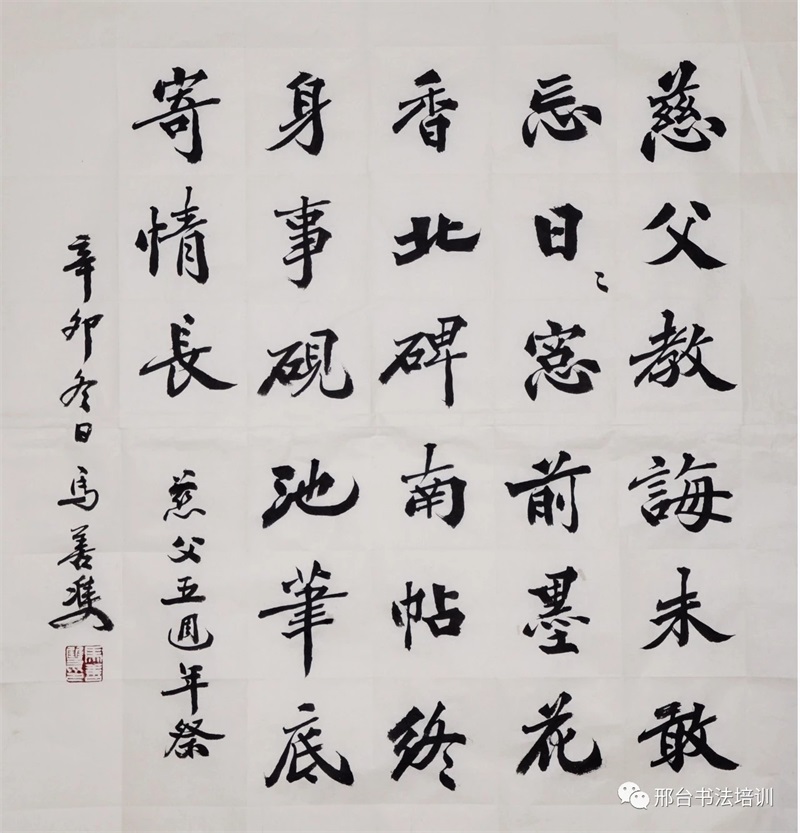 慈父教誨未敢
忘日〻窓前墨花
香北碑南帖終
身事硯池筆底
寄情長
慈父五週年祭
辛卯冬日馬善雙
邢台书法培训